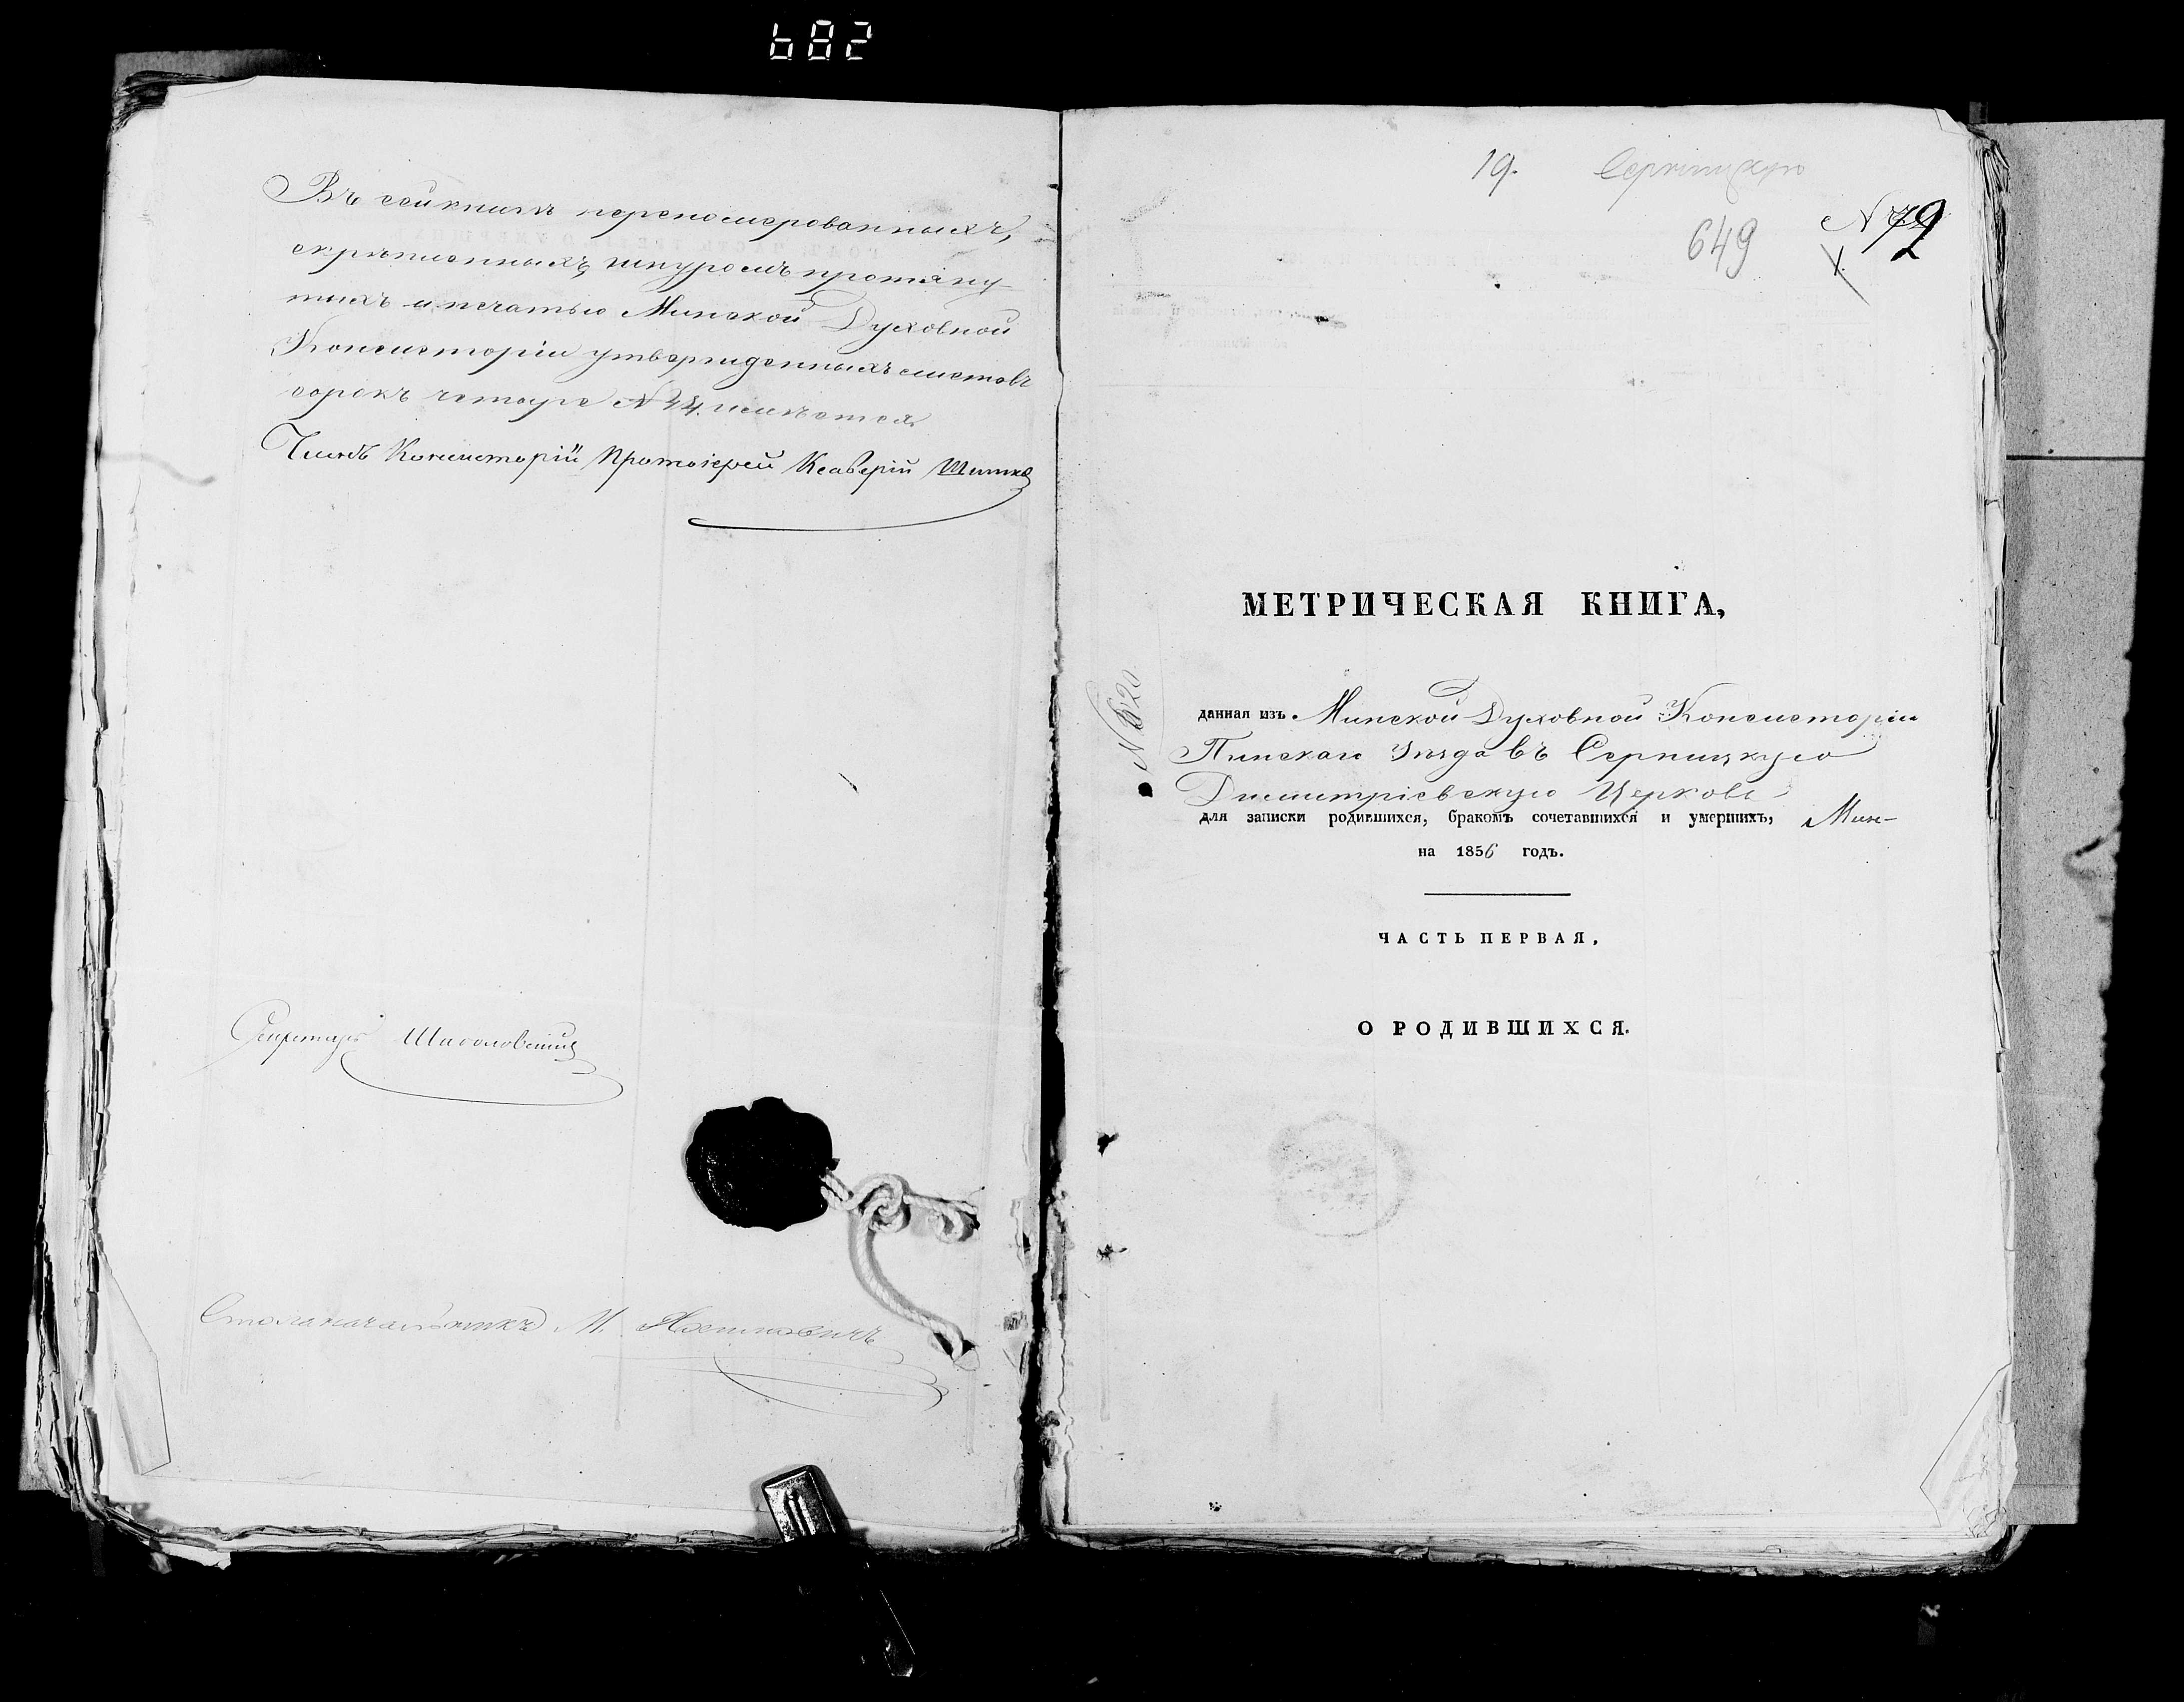 682
Въ сей книгѣ перенумерованныхъ,
скрѣпленныхъ, шнуромъ протяну-
тыхъ и печатью Минской Духовной
Консисторіи утвержденныхъ листовъ
сорокъ четыре № 44. имѣется
Членъ Консисторіи Протоіерей Ксаверій
Секретарь
Столоначальникъ М.
19.
649
№ 79
МЕТРИЧЕСКАЯ КНИГА,
данная изъ Минской Духовной Консисторіи
Пинскаго Уѣзда въ Серницкую
Димитріевскую Церковь
для записки родившихся, бракомъ сочетавшихся и умершихъ,
на 1856 годъ.
ЧАСТЬ ПЕРВАЯ,
О РОДИВШИХСЯ.